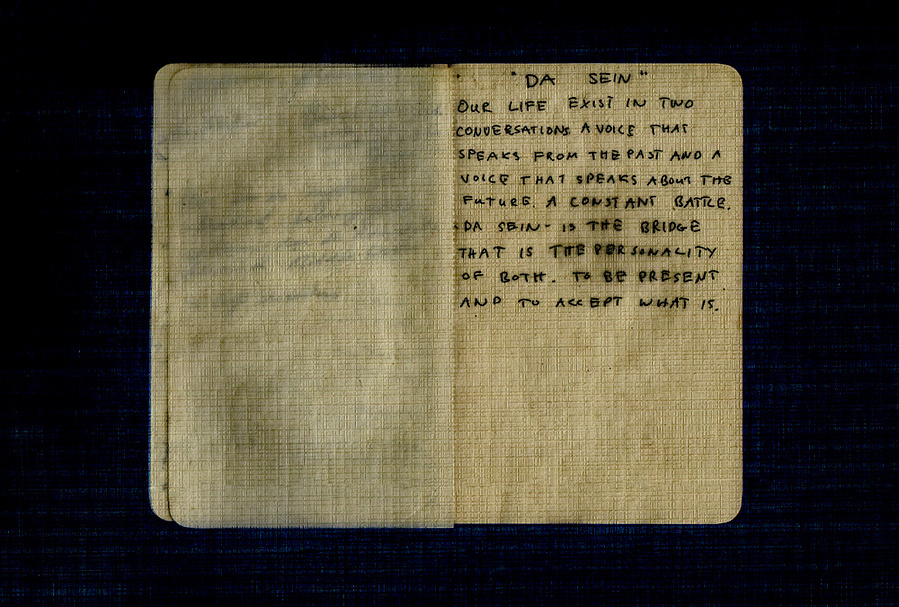 "DA SEIN"
OUR LIFE EXIST IN TWO
CONVERSATIONS A VOICE THAT
SPEAKS FROM THE PAST AND A
VOICE THAT SPEAKS ABOUT THE
FUTURE. A CONSTANT BATTLE.
DA SEIN- IS THE BRIDGE
THAT IS THE PERSONALITY
OF BOTH. TO BE PRESENT
AND TO ACCEPT WHAT IS.